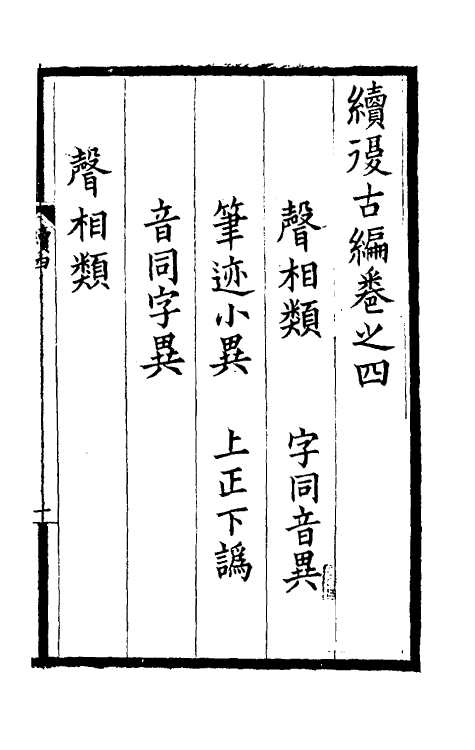 續復古編卷之四
聲相類 字同音異
筆迹小異 上正下譌
音同字異
聲相類
續四
一